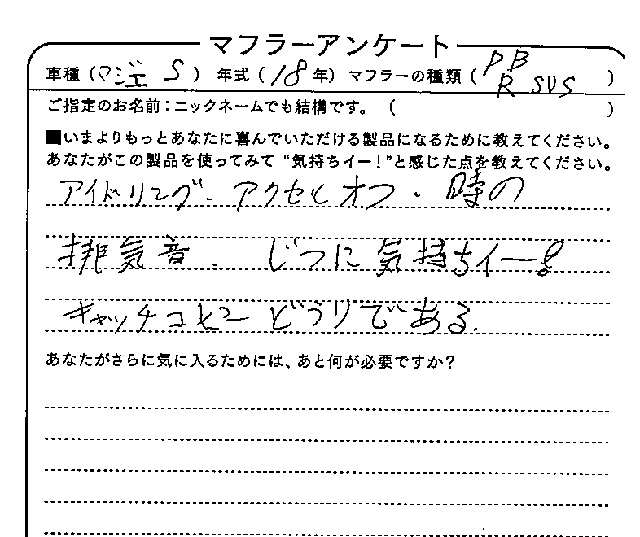 マフラーアンケート
車種(マジェ S) 年式(18年) マフラーの種類(PB R SUS)
ご指定のお名前:ニックネームでも結構です。( )
■いまよりもっとあなたに喜んでいただける製品になるために教えてください。
あなたがこの製品を使ってみて"気持ちイー!"と感じた点を教えてください。
アイドリング・アクセルオフ・時の
排気音. じつに気持ちイー!
キャッチコピーどうりである.
あなたがさらに気に入るためには、あと何が必要ですか?